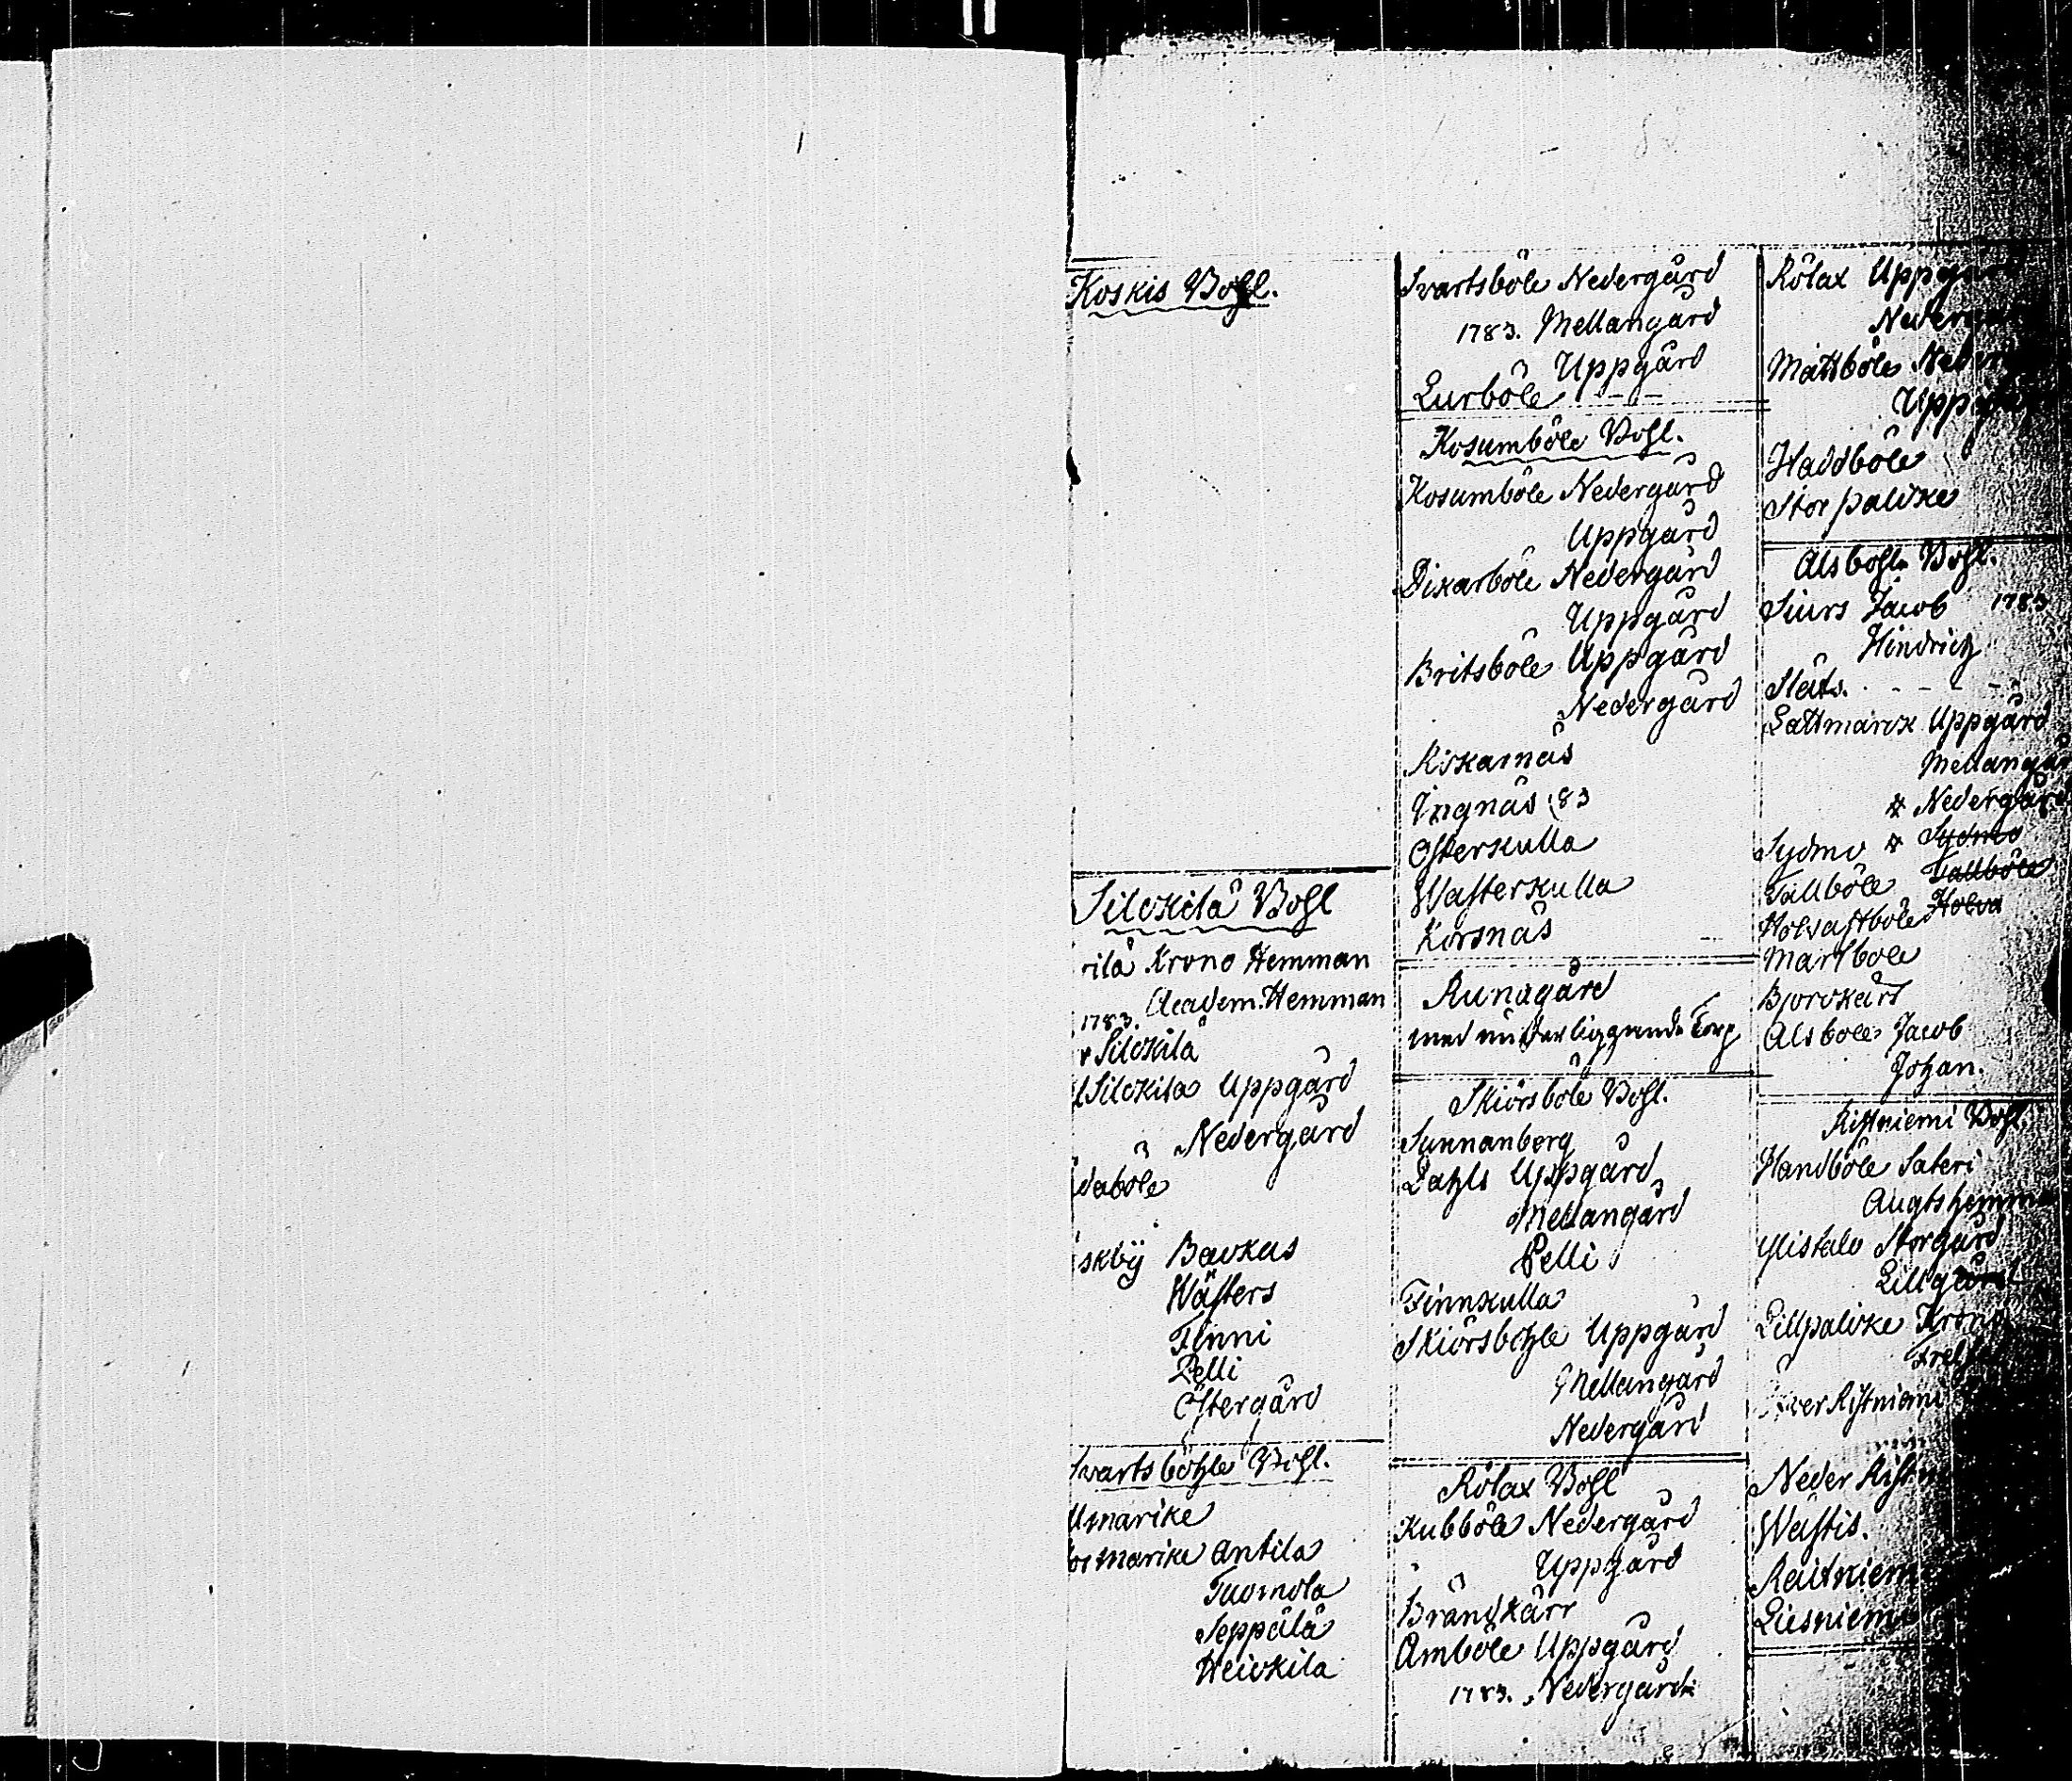 Koskis Bohl.
Silckilä Bohl
rilä Krono Hemman
1783. Academ. Hemman
r Silckilä
l Silckila Uppgård
Nedergård
daböle
skbÿ Backus
Wästers
Finni
Pelli
Östergård
Svartsböhle Bohl.
llmarike
or marike Antila
Tuomola
Seppälä
Heickila
Svartsböle Nedergård
1783. Mellangård
Uppgård
Lurböle - - -
Kosumböle Bohl.
Kosumböle Nedergård
Uppgård
Dixarböle Nedergård
Uppgård
Britsböle Uppgård
Nedergård
Kiskarnäs
Ingnäs 83
Österkulla
Wästerkulla
Korsnäs
Runagård
med underliggande Torp
Skiörsböle Bohl.
Sunnanberg
Dahls Uppgård
Mellangård
Pelli
Finnkulla
Skiörsbohle Uppgård
Mellangård
Nedergård
Rölax Bohl
Kubböle Nedergård
Uppgård
Brändkärr
Amböle Uppgård
1783. Nedergård
Rölax Uppgård
Neder
Mattböle Neder
Uppgård
Haddböle
Storpalcke
Alsbohle Bohl.
Siurs Jacob 1783
Hindrich
Släts. - - - -
Lattmarck Uppgård
Mellangår
* Nedergård
Sydmo * Sydmo
Tallböle Tallböle
Holvastböle Holva
Marsböle
Björckärr
Alsböle Jacob
Johan.
Ristniemi Bohl.
Handböle Säteri
Augtshemma
Ylistalo Storgård
Lillgård
Lillpalcke Krono
Frels
Över Ristniemi
Neder Ristn
Wästis.
Raitniem
Liesniemi